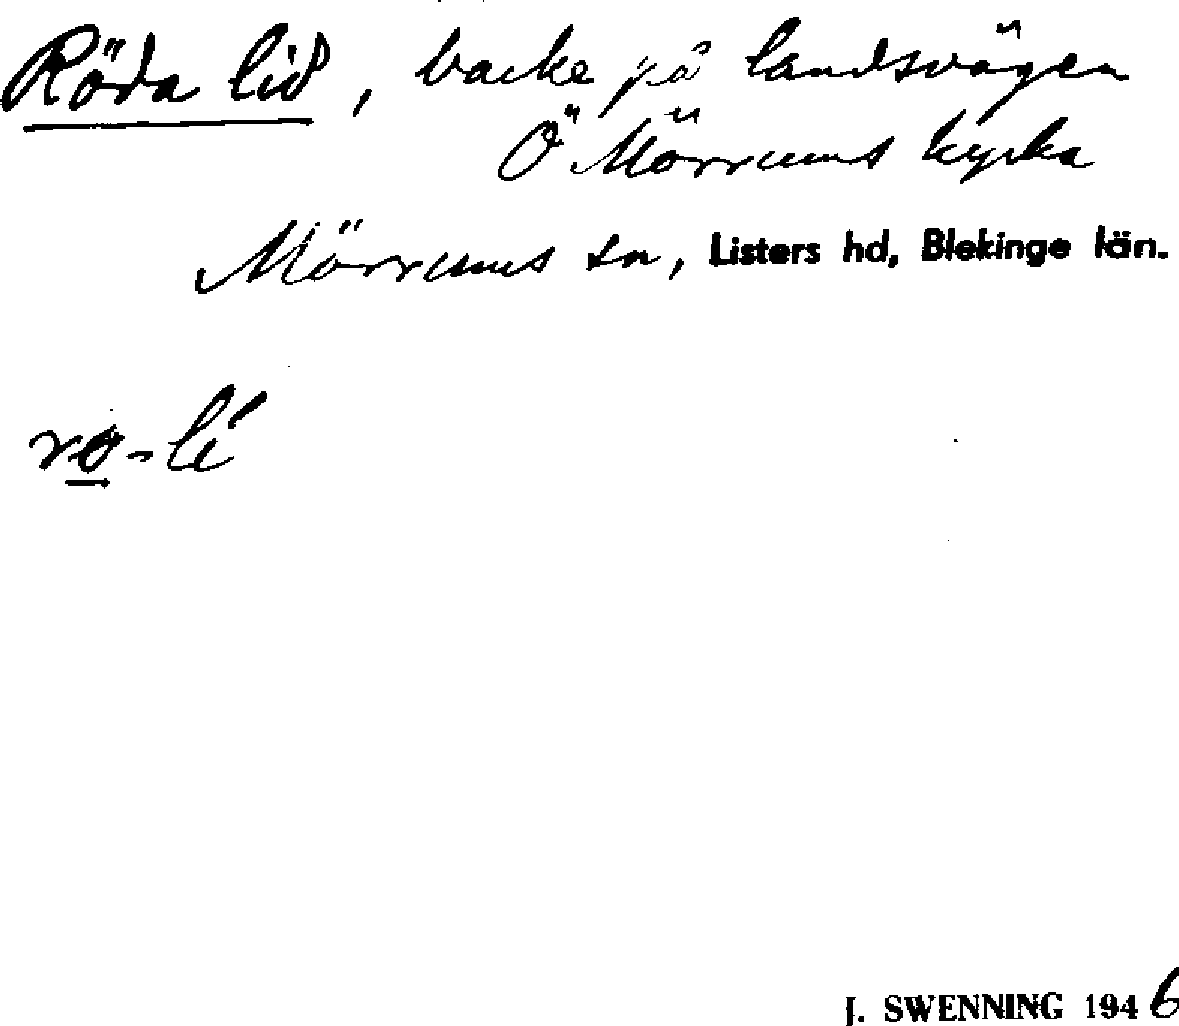 Röda lid, backe på landsvägen
Ö Mörrums kyrka
Mörrums sn, Listers hd, Blekinge län.
ro-lé
J. SWENNING 1946